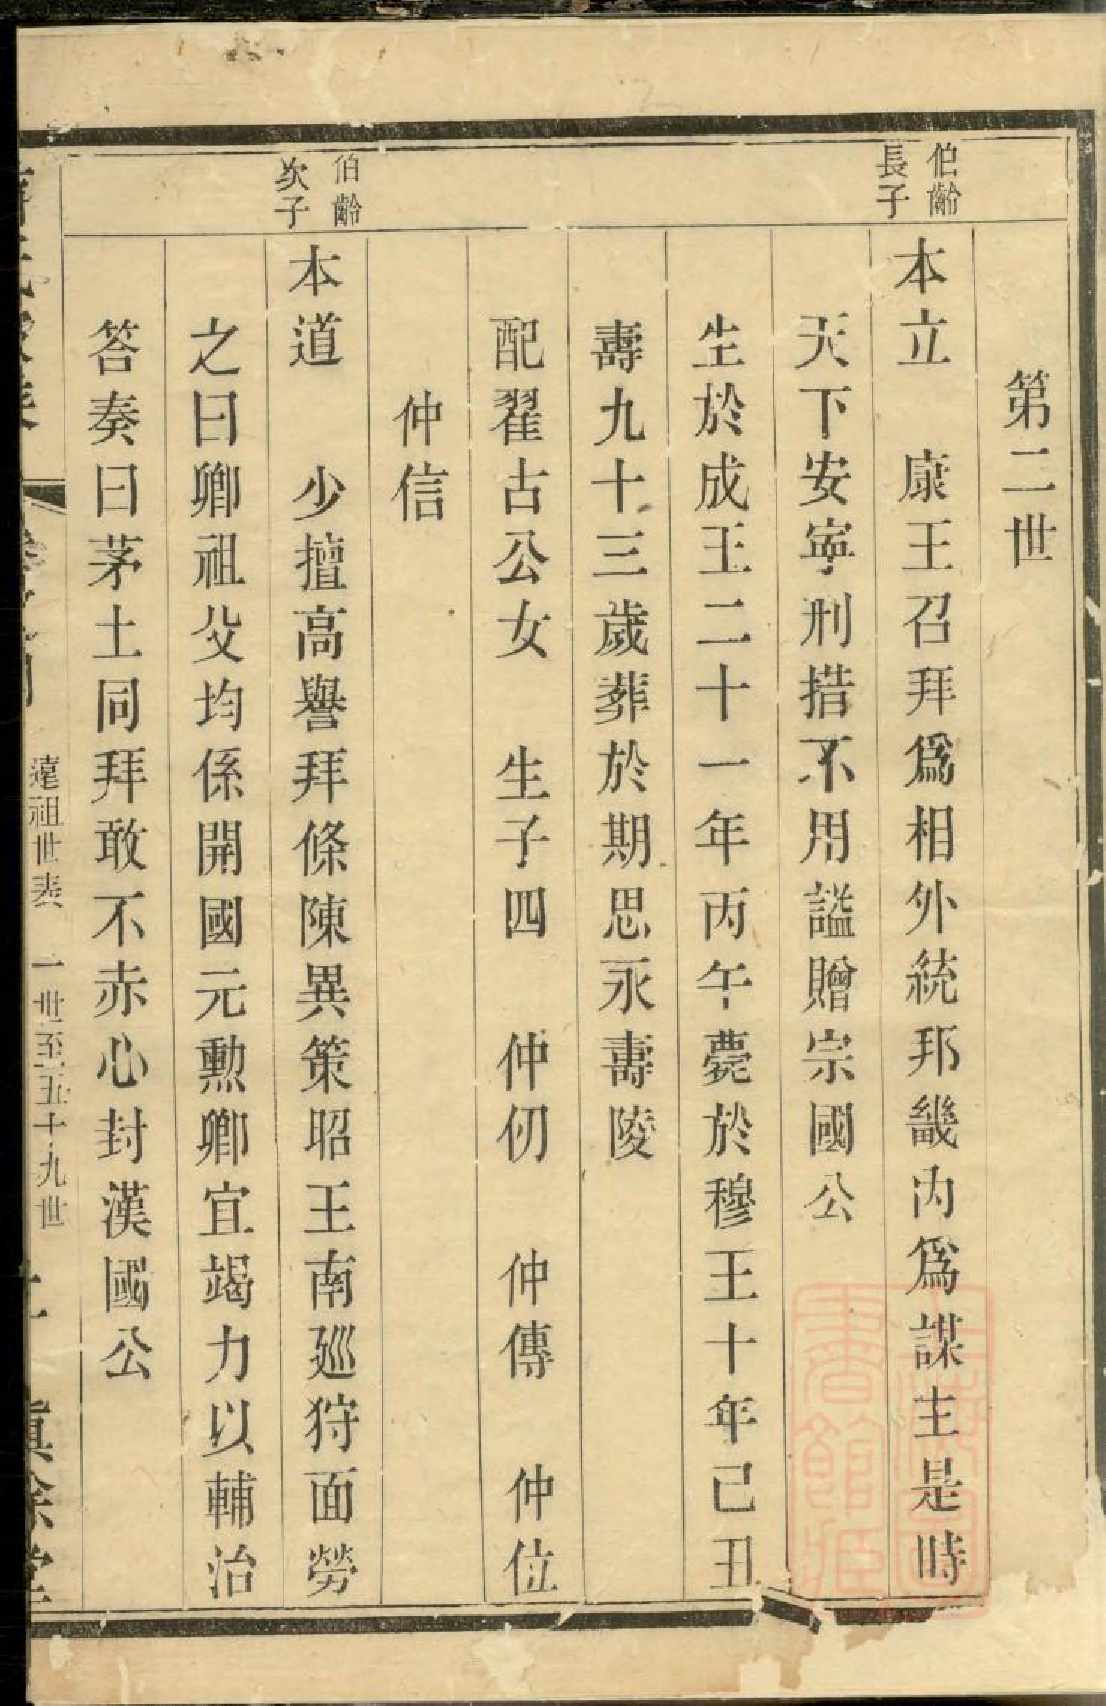 第二世
伯齡
長子
本立　康王召拜爲相外統邦畿內爲謀主是時
天下安寧刑措不用諡贈宗國公
生於成王二十一年丙午薨於穆王十年己丑
壽九十三歲葬於期思永壽陵
配翟古公女　生子四　仲仞　仲傳　仲位
仲信
伯齡
次子
本道　少擅高譽拜條陳異策昭王南廵狩面勞
之曰卿祖父均係開國元勲卿宜竭力以輔治
答奏曰茅土同拜敢不赤心封漢國公
遠祖世表　一世至五十九世